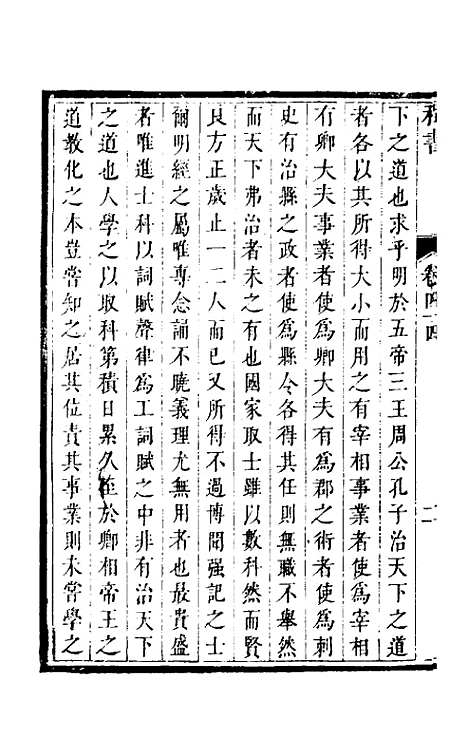 下之道也求乎明於五帝三王周公孔子治天下之道
者各以其所得大小而用之有宰相事業者使爲宰相
有卿大夫事業者使爲卿大夫有爲郡之術者使爲刺
史有治縣之政者使爲縣令各得其任則無職不舉然
而天下弗治者未之有也國家取士雖以數科然而賢
良方正歲止一二人而已又所得不過博聞强記之士
爾明經之屬唯專念誦不曉義理尤無用者也最貴盛
者唯進士科以詞賦聲律爲工詞賦之中非有治天下
之道也人學之以取科第積日累久至於卿相帝王之
道教化之本豈嘗知之居其位責其事業則未嘗學之
卷四十四
二